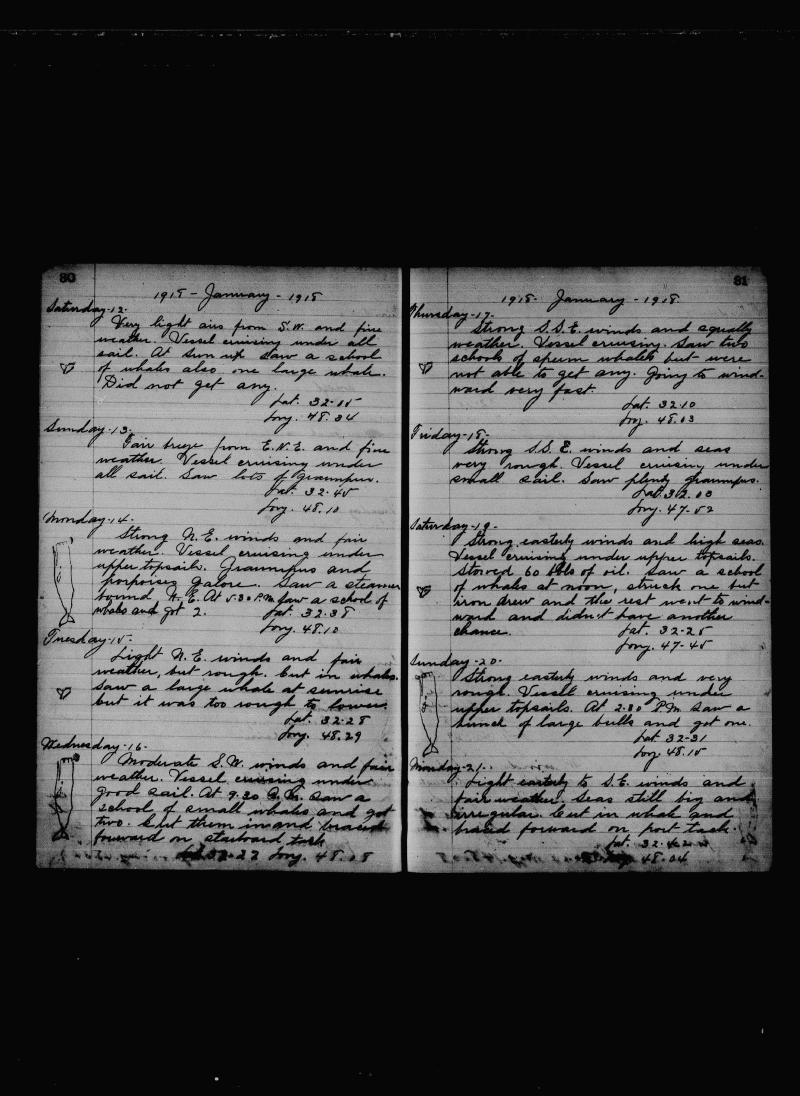 80
1918 - January - 1918
Saturday-12-
Very light airs from S.W. and fine
weather. Vessel cruising under all
sail. At sun saw a school
of whales also one large whale.
Did not get any.
Lat. 32-15
Long. 48.34
Sunday-13-
Fair breeze from E.N.E. and fine
weather. Vessel cruising under
all sail. Saw lots of Grampus.
Lat. 32-45
Long. 48.10
Monday-14-
Strong N.E. winds and fair
weather. Vessel cruising under
upper topsails. Grampus and
porpoises galore. Saw a steamer
bound N.E. At 5.30 P.M. saw a school of
whales and got 2. Lat. 32.38
Long. 48.10
Tuesday-15-
Light N.E. winds and fair
weather, but rough. Cut in whales.
Saw a large whale at sunrise
but it was too rough to lower.
Lat. 32-28
Long. 48.29
Wednesday-16-
Moderate S.W. winds and fair
weather. Vessel cruising under
good sail. At 9.30 saw a
school of small whales and got
two. Cut them in and braced
forward on starboard tack
Long. 48.08
81
1918- January - 1918
Thursday-17-
Strong S.S.E. winds and squally
weather. Vessel cruising. Saw two
schools of sperm whales but were
not able to get any. Going to wind-
ward very fast.
Lat. 32.10
Long. 48.03
Friday-18-
Strong S.S.E. winds and seas
very rough. Vessel cruising under
small sail. Saw plenty grampus.
Lat. 32.03
Long. 47-52
Saturday-19-
Strong easterly winds and high seas.
Vessel cruising under upper topsails.
Stowed 60 bbls of oil. Saw a school
of whales at noon, struck one but
iron drew and the rest went to wind-
ward and didn't have another
chance. Lat. 32-25
Long. 47-45
Sunday-20-
Strong easterly winds and very
rough. Vessel cruising under
upper topsails. At 2.30 P.M. saw a
bunch of large bulls and got one.
Lat 32-31
Long 48.15
Monday-21-
Light easterly to S.E. winds and
fair weather. Seas still big and
irregular. Cut in whale and
braced forward on port tack.
Lat. 32.42 N
48.04